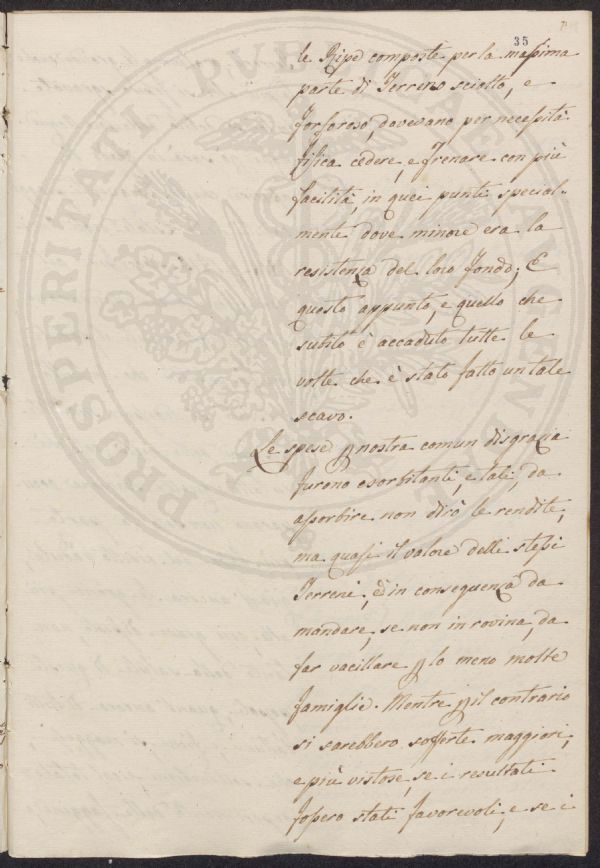 35
le Ripe composte per la massima
parte di Terreno sciolto, e
forforoso, dovevano per necessità
fisica cedere, e frenare con più
facilità, in quei punti special-
mente dove minore era la
resistenza del loro fondo; E
questo appunto, e quello che
subito è accaduto tutte le
volte che è stato fatto un tale
scavo.
Le spese p nostra comun disgrazia
furono esorbitanti, e tali, da
assorbire non dirò le rendite,
ma quasi il valore delli stessi
Terreni, è in conseguenza da
mandare, se non in rovina, da
far vacillare p lo meno molte
famiglie. Mentre p il contrario
si sarebbero sofferte maggiori,
e più vistose, se i resultati
fossero stati favorevoli, e se i
PROSPERITATI PUBLICAE AUGENDAE